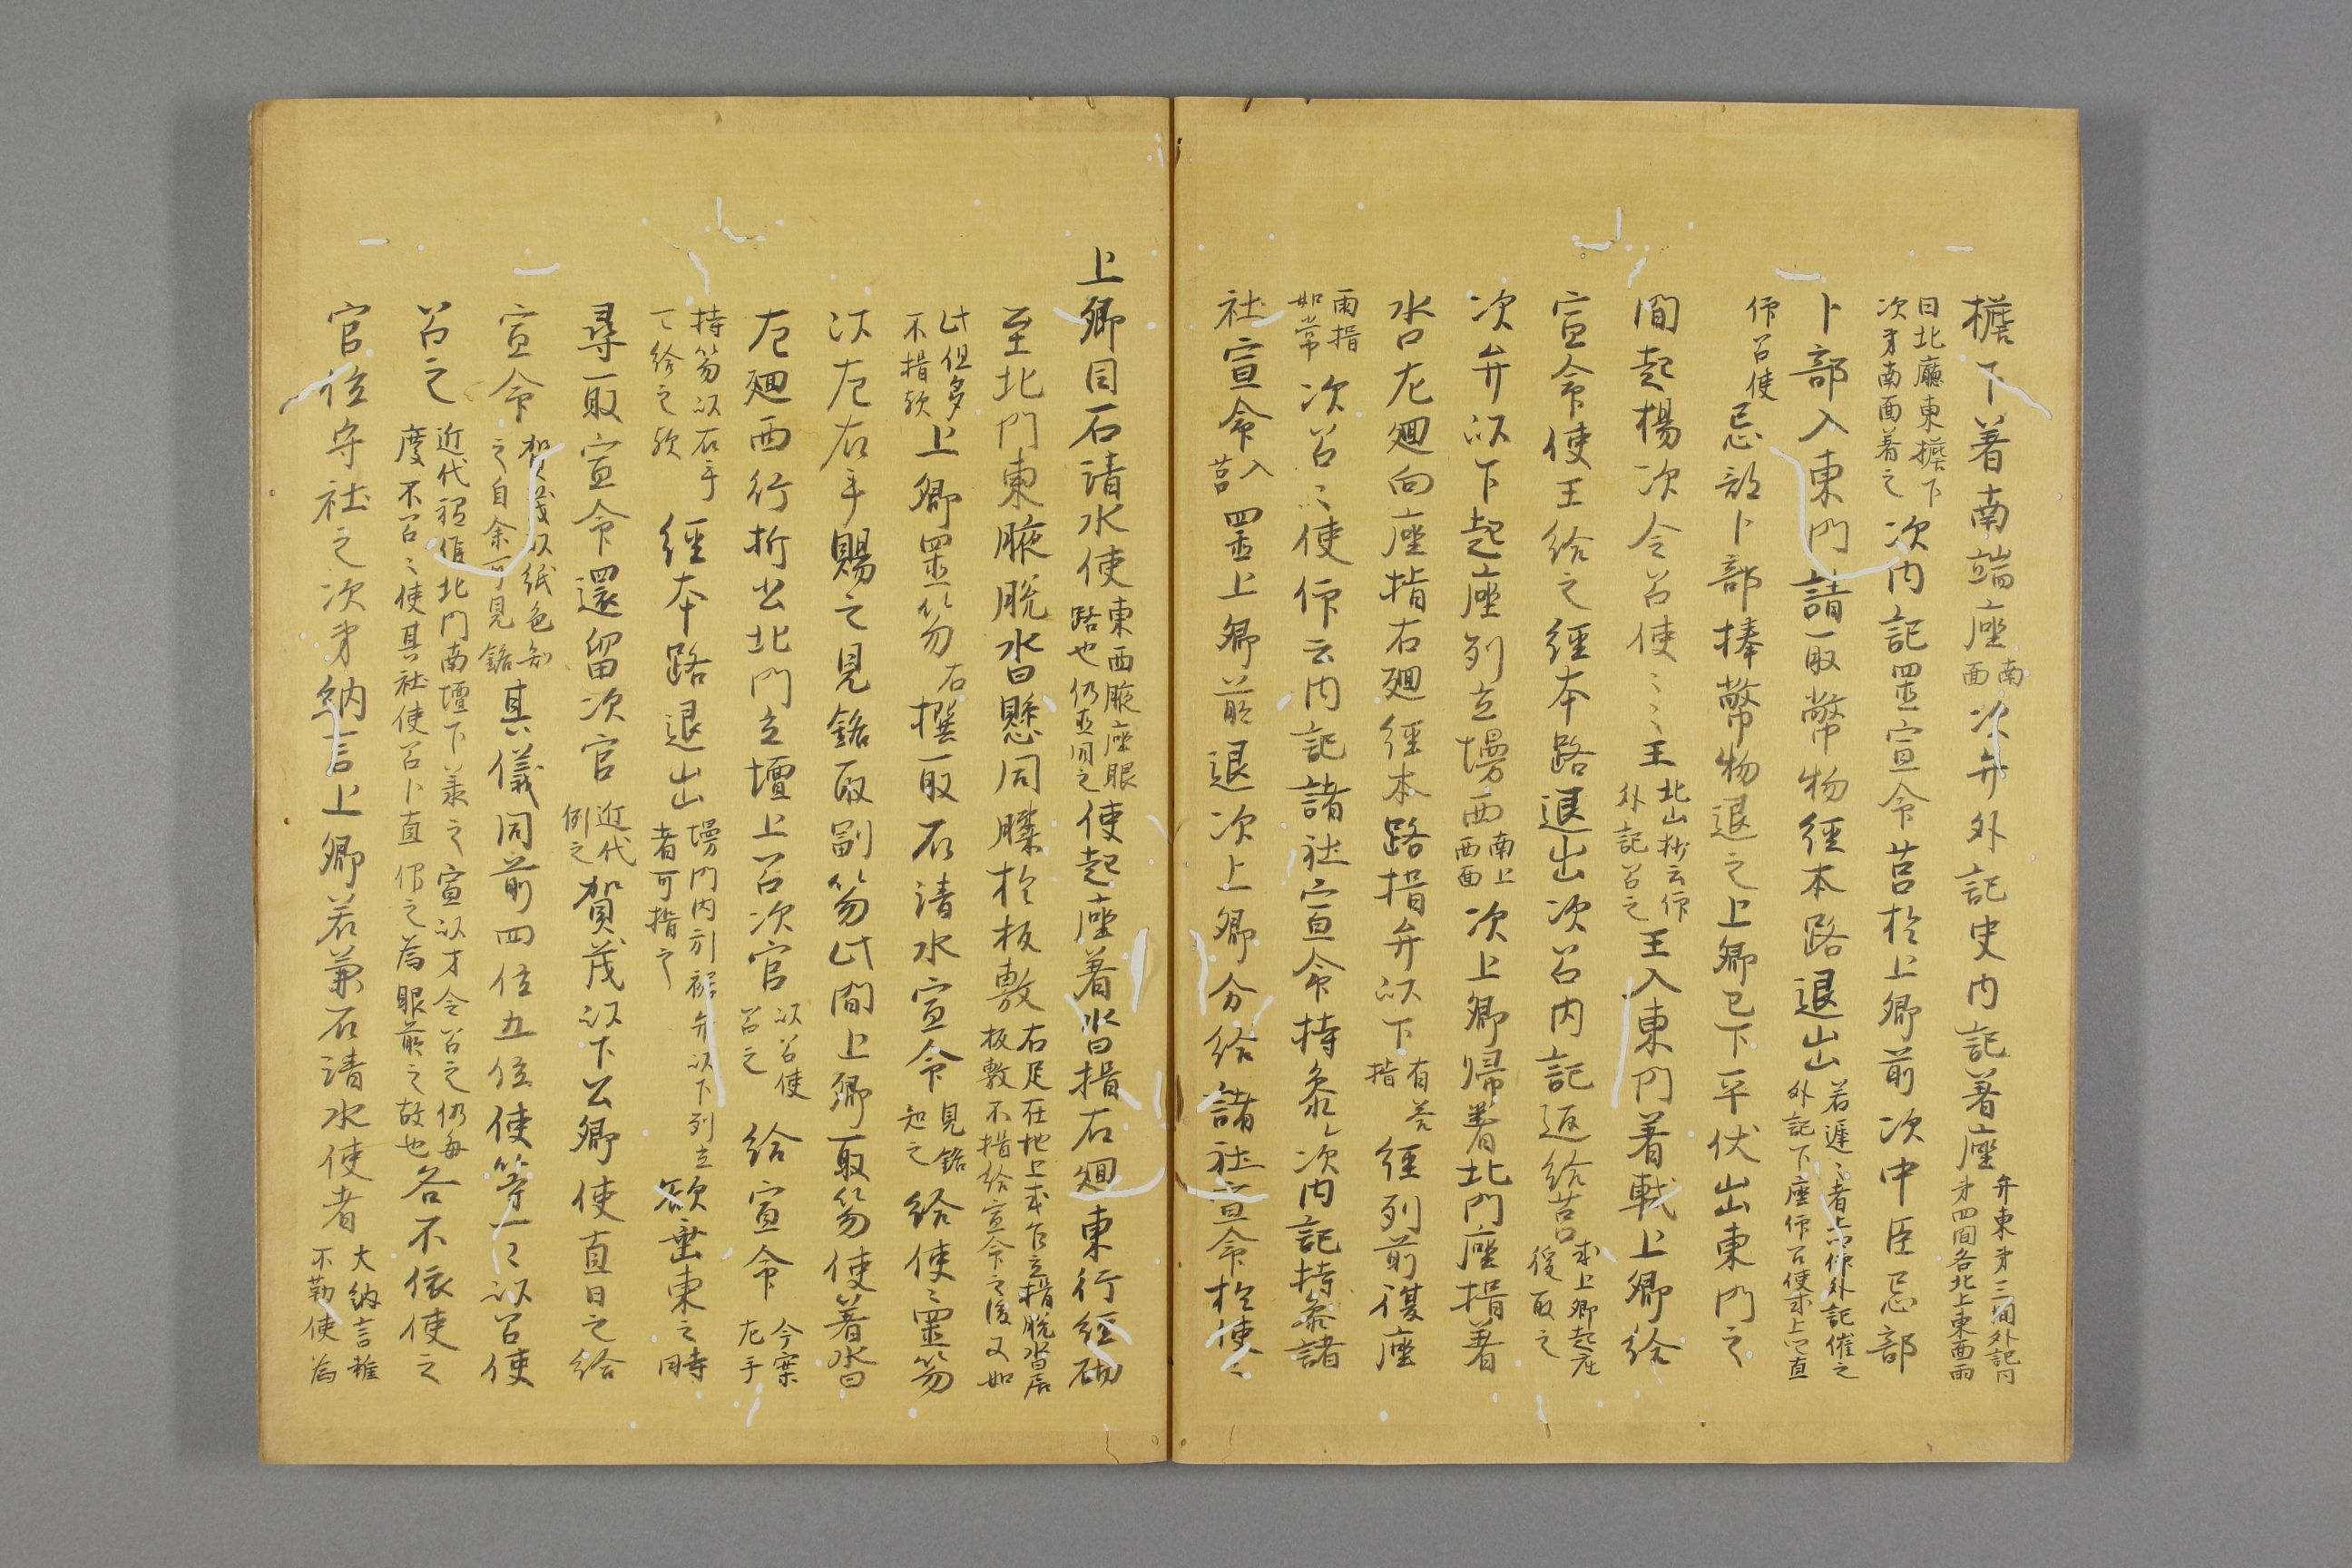 檐下着南端座南面次弁外記史内記着座弁東第三間外記内第四間各北上東面雨
日北廰東檐下次第南面着之次内記置宣命莒於上卿前次中臣忌部
卜部入東門請取幣物經本路退出若遅〻者上仰外記催之外記下座仰召使或上宣直
仰召使忌部卜部捧幣物退之上卿已下平伏出東門之
間起揚次令召使〻〻王北山抄云仰外記召之王入東門着軾上卿給
宣命使王給之經本路退出次召内記返給莒或上卿起座後取之
次弁以下起座列立墁西南上西面次上卿帰着北門座揖着
沓左廻向座揖右廻經本路揖弁以下有答揖經列前復座
雨揖如常次召〻使仰云内記諸社宣命持参〻次内記持参諸
社宣命入莒置上卿前退次上卿分給諸社宣命於使〻
上卿目石清水使東西腋座眼路也仍亟同之使起座着沓揖右廻東行經砌
至北門東腋脱沓懸同膝於板敷右足在地上或乍立揖脱沓居板敷不揖給宣命之後又如
此但多不揖歟上卿置笏右撰取石清水宣命見銘知之給使〻置笏
以左右手賜之見銘取副笏此間上卿取笏使着沓
左廻西行折出北門立壇上召次官以召使召之給宣命今案左手
持笏以右手て給之歟經本路退出墁門内引裾弁以下列立者可揖之欲垂東之時
尋取宣命還留次官近代例之賀茂以下公卿使直目之給
宣命賀茂以紙色知之自余可見銘其儀同前四位五位使等一〻以召使
召之近代祢宜北門南壇下兼之宣以才令召之仍毎度不召〻使其社使召卜直仰之為眼前之故也各不依使之
官位守社之次第納言上卿若兼石清水使者大納言雖不勤使為